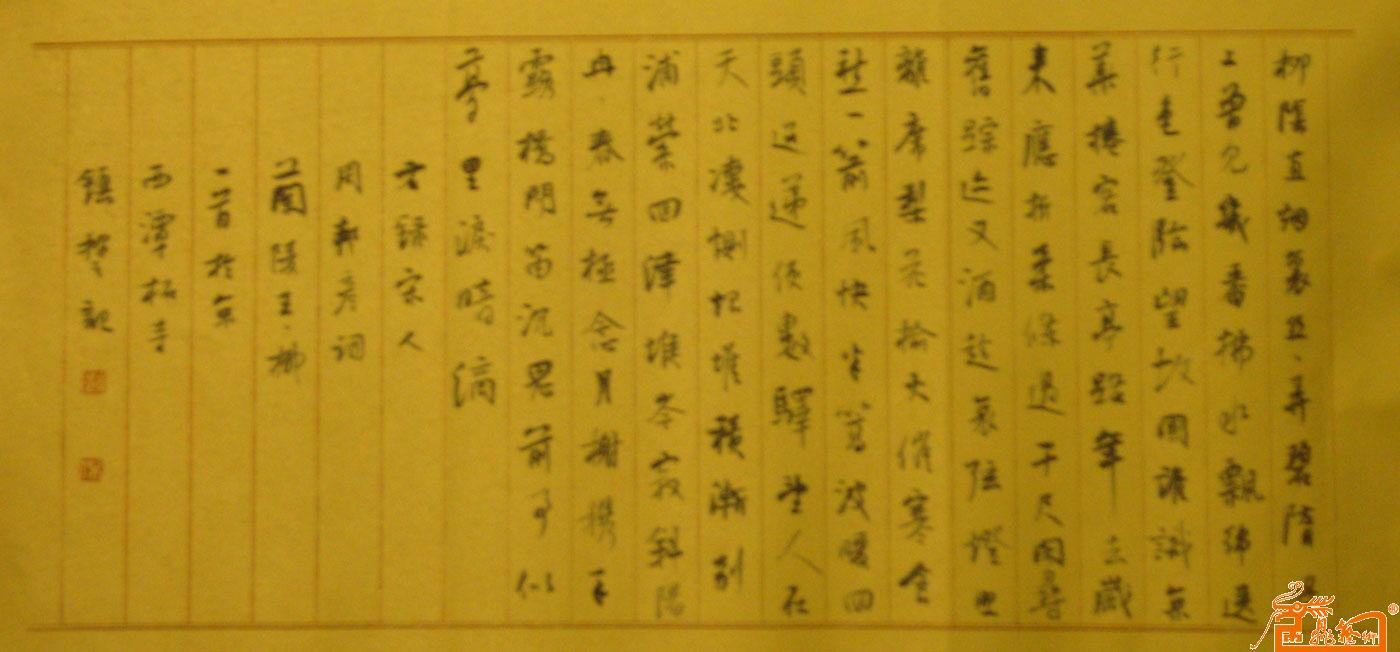 柳陰直烟裏絲、弄碧隋
上曾見幾番拂水飄綿送
行色登臨望故國誰識京
華捲客長亭路年去歲
來應折柔條過千尺閒尋
舊踪迹又酒趁哀弦燈照
離席梨花榆火催寒食
愁一箭風快半篙波暖回
頭迢遞便數驛望人在
天北淒惻恨堆積漸別
浦縈回津堠岑寂斜陽
冉、春無極念月榭攜手
露橋聞笛沉思前事似
夢里淚暗滴
右錄宋人
周邦彥詞
蘭陵王·柳
一首於京
西潭柘寺
鎮 記